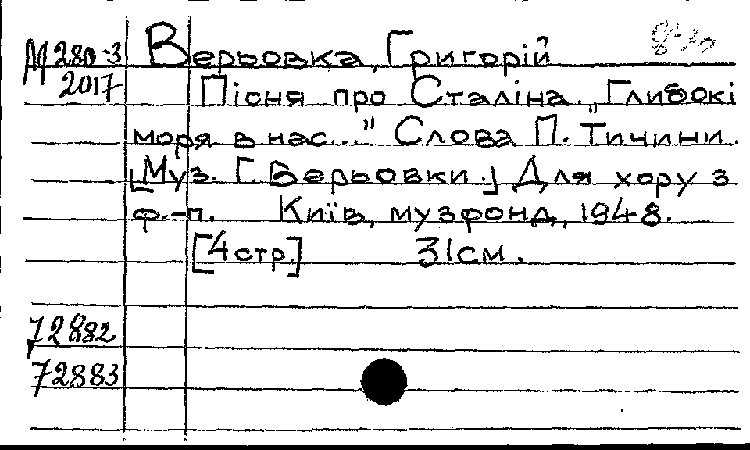 М 280-3 Верьовка, Григорій
2017 Пісня про Сталіна „Глибокі
моря в нас..." Слова П. Тичини.
[Муз. Г. Верьовки.] Для хору з
ф.-п. Київ, музфонд, 1948.
[4 стр.] 31см.
72882
72883